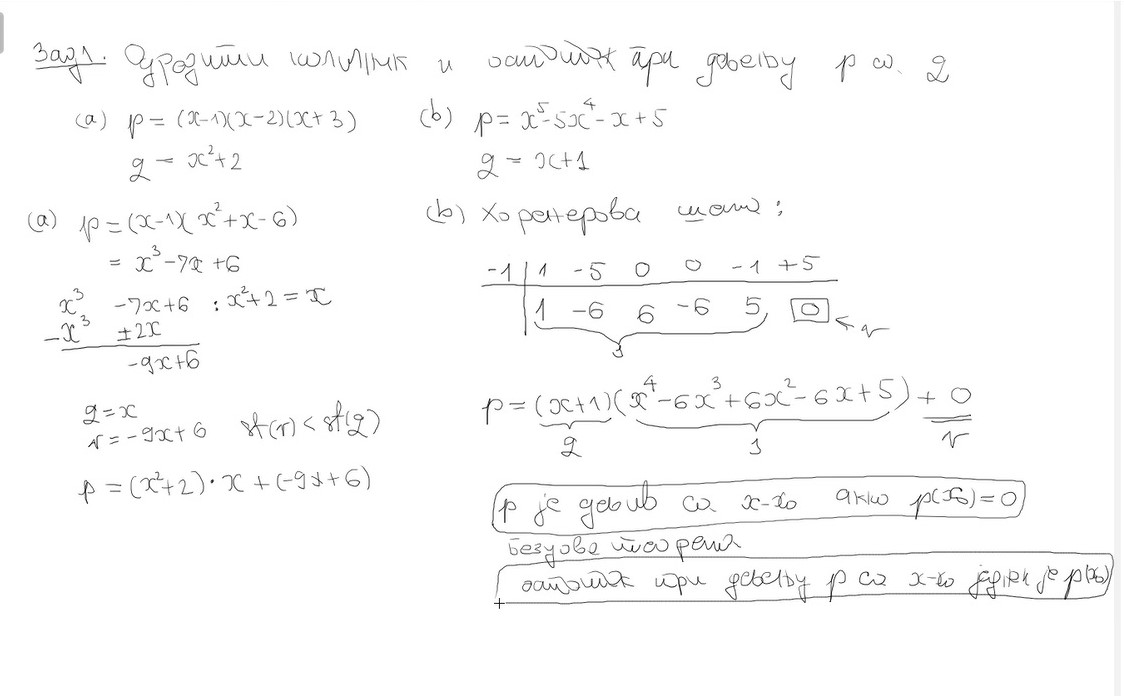 Зад 1. Одредити количник и остатак при дељењу p са q
(a) p = (x-1)(x-2)(x+3)
q = x²+2
(b) p = x⁵-5x⁴-x+5
q = x+1
(a) p = (x-1)(x²+x-6)
= x³-7x+6
x³ -7x+6 : x²+2 = x
-x³ ±2x
-9x+6
q = x
r = -9x+6 st(r) < st(q)
p = (x²+2)·x+(-9x+6)
(b) Хорнерова шема:
-1 | 1 -5 0 0 -1 +5
1 -6 6 -6 5, 0 ← r
s
p = (x+1)(x⁴-6x³+6x²-6x+5) + 0
q s r
p је дељив са x-x₀ акко p(x₀)=0
Безуова теорема
остатак при дељењу p са x-x₀ једнак је p(x₀)